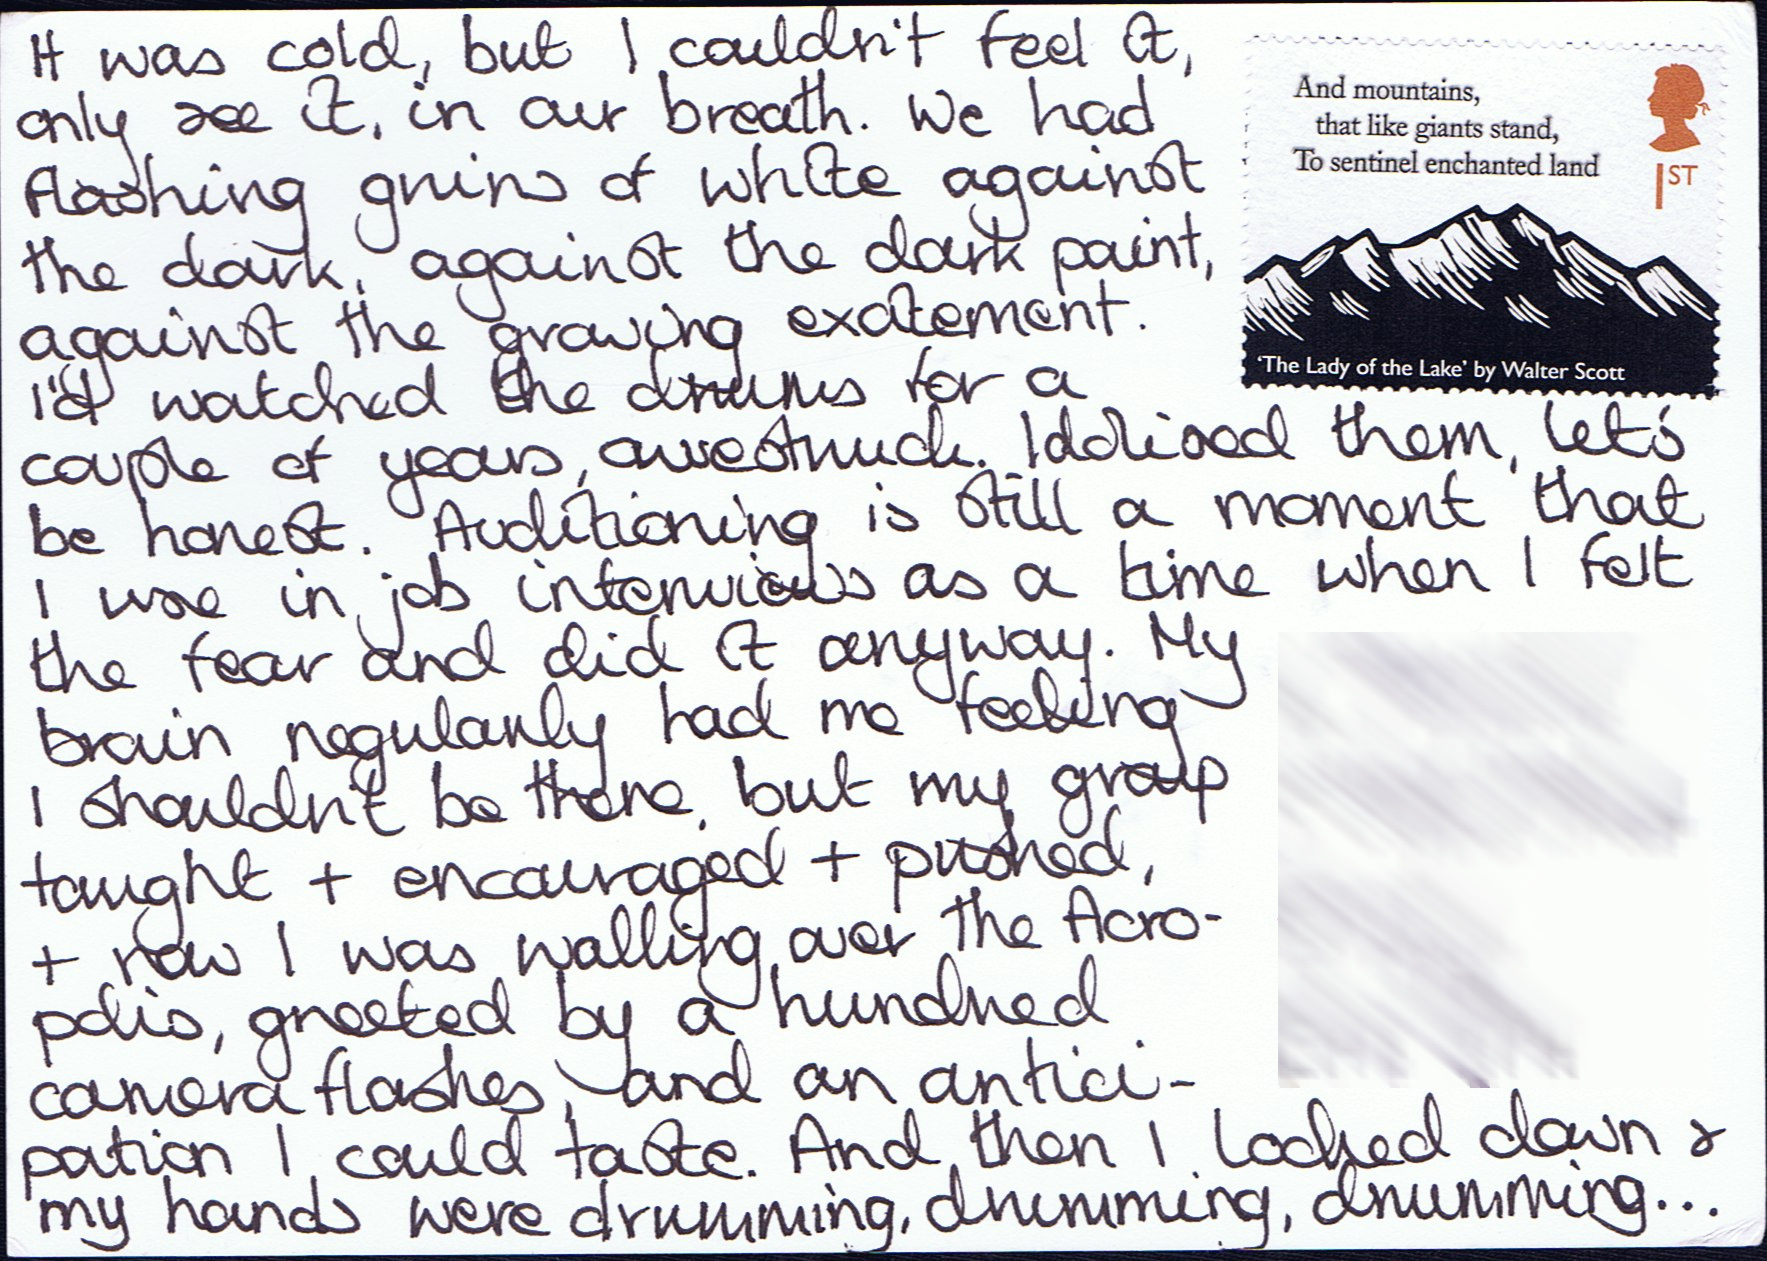 It was cold, but I couldn't feel it,
only see it, in our breath. We had
flashing grins of white against
the dark, against the dark paint,
against the growing excitement.
I'd watched the drums for a
couple of years, awestruck. Idolised them, let's
be honest. Auditioning is still a moment that
I use in job interviews as a time when I felt
the fear and did it anyway. My
brain regularly had me feeling
I shouldn't be there, but my group
taught + encouraged + pushed,
+ now I was walking over the Acro-
polis, greeted by a hundred
camera flashes, and an antici-
pation I could taste. And then I looked down &
my hands were drumming, drumming, drumming...
And mountains,
that like giants stand,
To sentinel enchanted land
1ST
'The Lady of the Lake' by Walter Scott